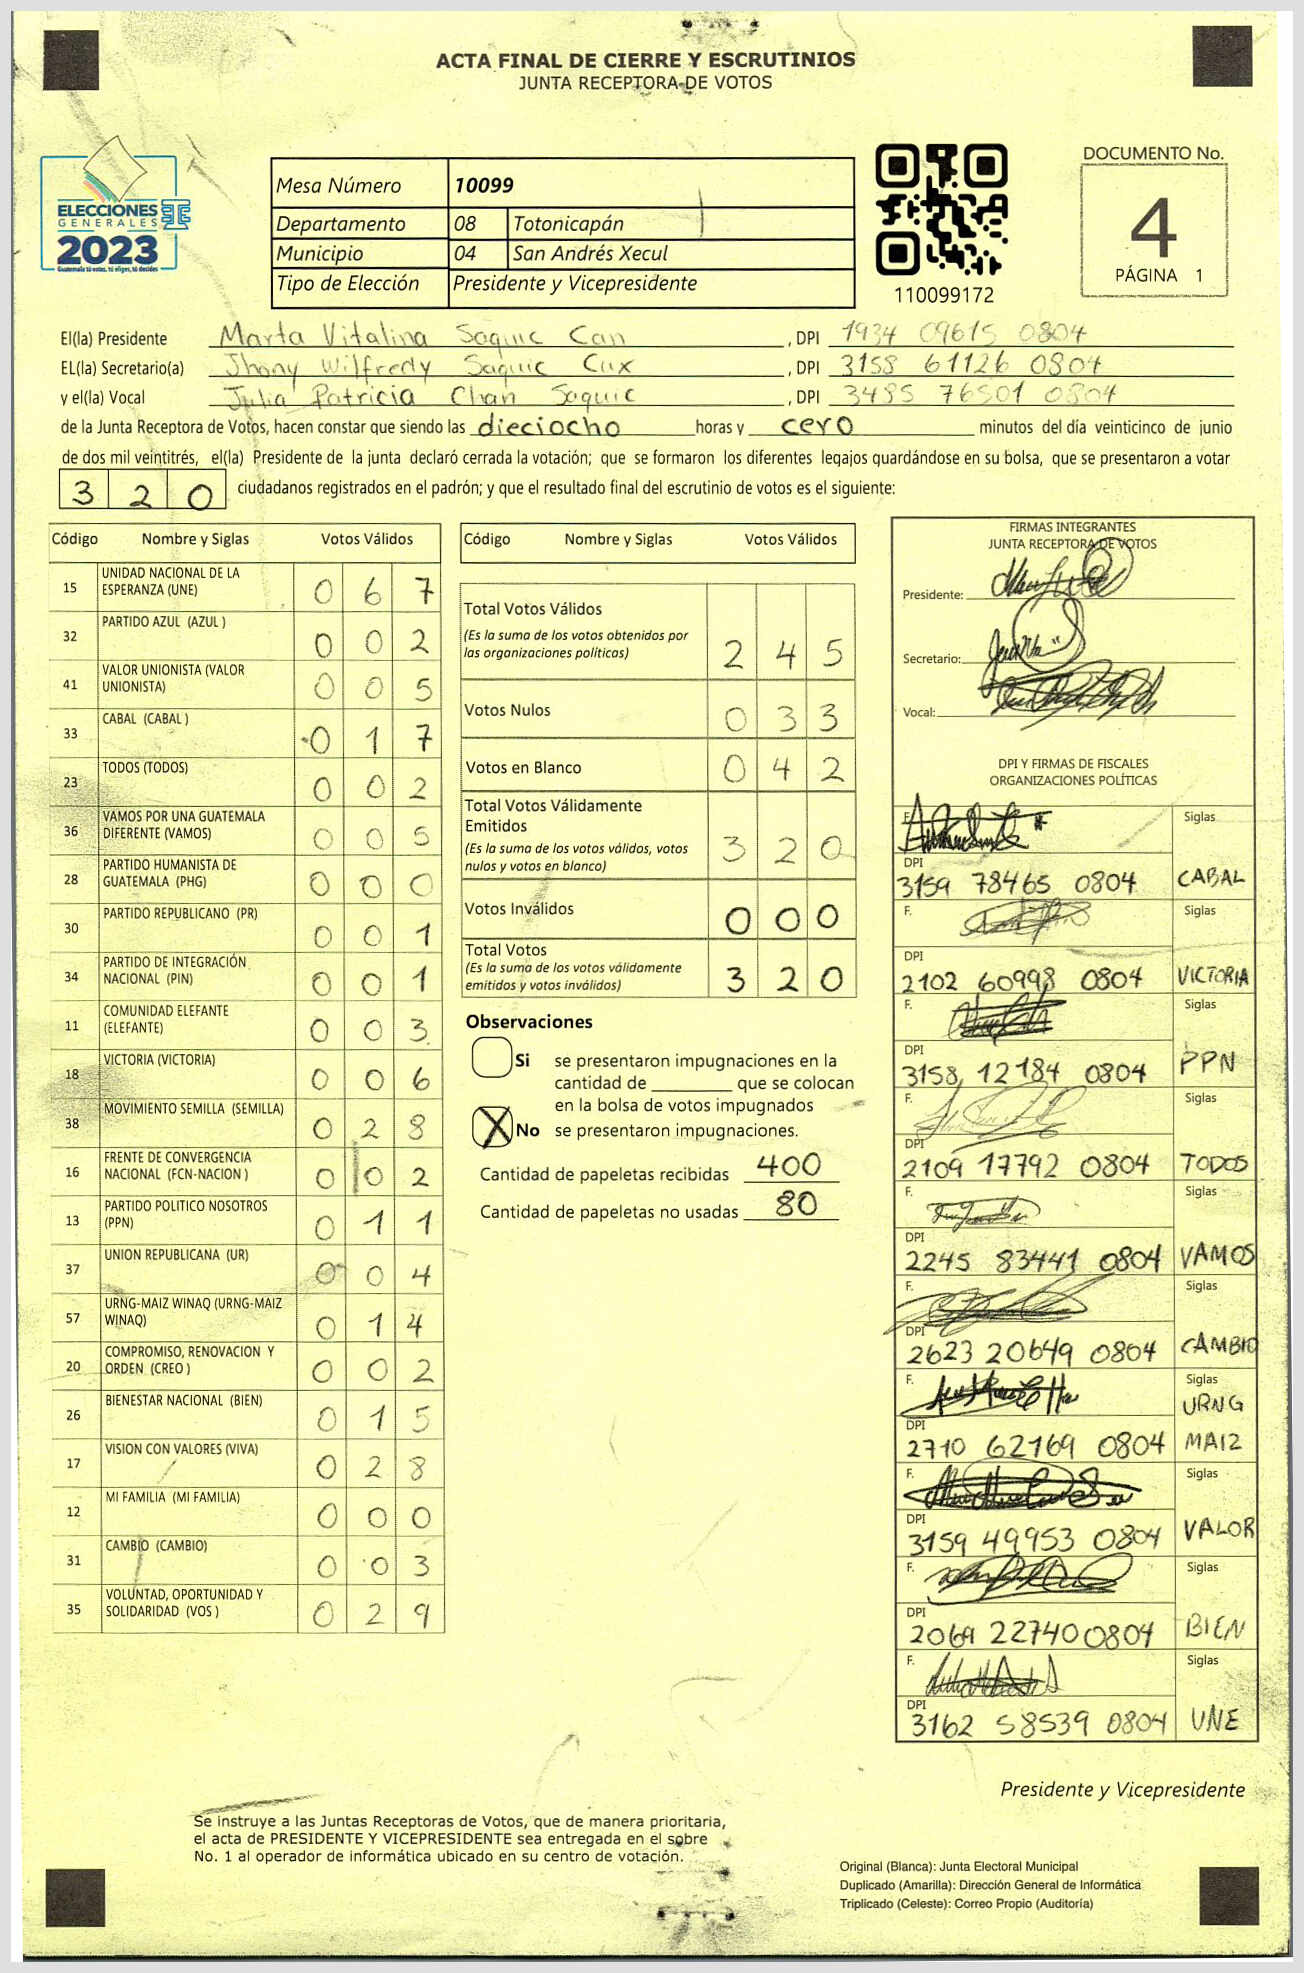 ACTA FINAL DE CIERRE Y ESCRUTINIOS
JUNTA RECEPTORA DE VOTOS
ELECCIONES
GENERALES
2023
Guatemala tú votas, tú eliges, tú decides
Mesa Número 10099
Departamento 08 Totonicapán
Municipio 04 San Andrés Xecul
Tipo de Elección Presidente y Vicepresidente
110099172
DOCUMENTO No.
4
PÁGINA 1
El(la) Presidente Marta Vitalina Saquic Can, DPI 1934 09615 0804
EL(la) Secretario(a) Jhony Wilfredy Saquic Cux, DPI 3158 61126 0804
y el(la) Vocal Julia Patricia Chan Saquic, DPI 3485 76501 0804
de la Junta Receptora de Votos, hacen constar que siendo las dieciocho horas y cero minutos del día veinticinco de junio
de dos mil veintitrés, el(la) Presidente de la junta declaró cerrada la votación; que se formaron los diferentes legajos guardándose en su bolsa, que se presentaron a votar
320 ciudadanos registrados en el padrón; y que el resultado final del escrutinio de votos es el siguiente:
Código Nombre y Siglas Votos Válidos
15 UNIDAD NACIONAL DE LA ESPERANZA (UNE) 0 6 7
32 PARTIDO AZUL (AZUL ) 0 0 2
41 VALOR UNIONISTA (VALOR UNIONISTA) 0 0 5
33 CABAL (CABAL ) 0 1 7
23 TODOS (TODOS) 0 0 2
36 VAMOS POR UNA GUATEMALA DIFERENTE (VAMOS) 0 0 5
28 PARTIDO HUMANISTA DE GUATEMALA (PHG) 0 0 0
30 PARTIDO REPUBLICANO (PR) 0 0 1
34 PARTIDO DE INTEGRACIÓN NACIONAL (PIN) 0 0 1
11 COMUNIDAD ELEFANTE (ELEFANTE) 0 0 3
18 VICTORIA (VICTORIA) 0 0 6
38 MOVIMIENTO SEMILLA (SEMILLA) 0 2 8
16 FRENTE DE CONVERGENCIA NACIONAL (FCN-NACION ) 0 0 2
13 PARTIDO POLITICO NOSOTROS (PPN) 0 1 1
37 UNION REPUBLICANA (UR) 0 0 4
57 URNG-MAIZ WINAQ (URNG-MAIZ WINAQ) 0 1 4
20 COMPROMISO, RENOVACION Y ORDEN (CREO ) 0 0 2
26 BIENESTAR NACIONAL (BIEN) 0 1 5
17 VISION CON VALORES (VIVA) 0 2 8
12 MI FAMILIA (MI FAMILIA) 0 0 0
31 CAMBIO (CAMBIO) 0 0 3
35 VOLUNTAD, OPORTUNIDAD Y SOLIDARIDAD (VOS ) 0 2 9
Código Nombre y Siglas Votos Válidos
Total Votos Válidos
(Es la suma de los votos obtenidos por
las organizaciones políticas) 2 4 5
Votos Nulos 0 3 3
Votos en Blanco 0 4 2
Total Votos Válidamente
Emitidos
(Es la suma de los votos válidos, votos
nulos y votos en blanco) 3 2 0
Votos Inválidos 0 0 0
Total Votos
(Es la suma de los votos válidamente
emitidos y votos inválidos) 3 2 0
Observaciones
Si se presentaron impugnaciones en la
cantidad de ________ que se colocan
en la bolsa de votos impugnados
X No se presentaron impugnaciones.
Cantidad de papeletas recibidas 400
Cantidad de papeletas no usadas 80
FIRMAS INTEGRANTES
JUNTA RECEPTORA DE VOTOS
Presidente:
Secretario:
Vocal:
DPI Y FIRMAS DE FISCALES
ORGANIZACIONES POLÍTICAS
F. Siglas
DPI
3159 78465 0804 CABAL
F. Siglas
DPI
2102 60998 0804 VICTORIA
F. Siglas
DPI
3158 12184 0804 PPN
F. Siglas
DPI
2109 17792 0804 TODOS
F. Siglas
DPI
2245 83441 0804 VAMOS
F. Siglas
DPI
2623 20649 0804 CAMBIO
F. Siglas
URNG
DPI
2710 62169 0804 MAIZ
F. Siglas
DPI
3159 49953 0804 VALOR
F. Siglas
DPI
2069 22740 0804 BIEN
F. Siglas
DPI
3162 58539 0804 UNE
Presidente y Vicepresidente
Se instruye a las Juntas Receptoras de Votos, que de manera prioritaria,
el acta de PRESIDENTE Y VICEPRESIDENTE sea entregada en el sobre
No. 1 al operador de informática ubicado en su centro de votación.
Original (Blanca): Junta Electoral Municipal
Duplicado (Amarilla): Dirección General de Informática
Triplicado (Celeste): Correo Propio (Auditoría)